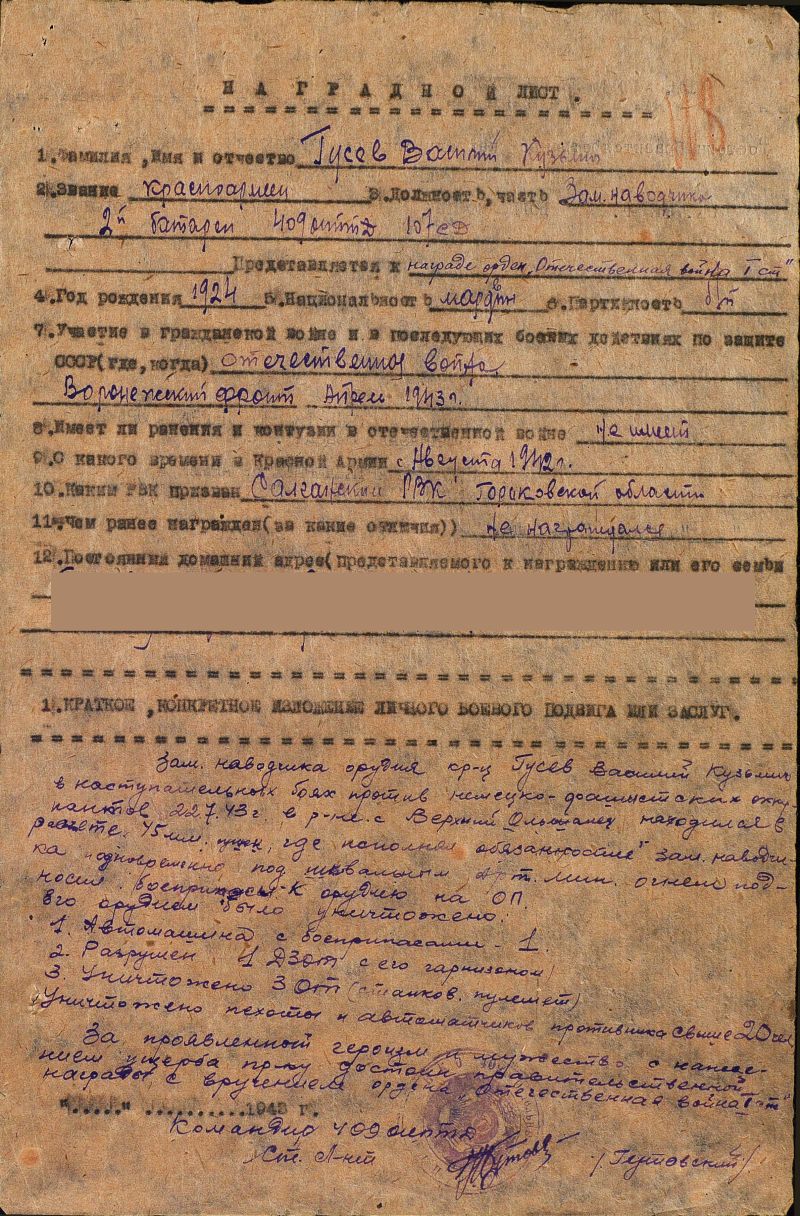 НАГРАДНОЙ ЛИСТ.
118
1.Фамилия, Имя и отчество Гусев Василий Кузьмич
2.Звание красноармеец 3.Должность, часть Зам. наводчика
2й батареи 409 оиптд 107 СД
Представляется к награде орден „Отечественная война I ст"
4.Год рождения 1924 5.Национальность мордвин 6.Партийность б/п
7.Участие в гражданской войне и в последующих боевых действиях по защите
СССР(где,когда) отечественная война
Воронежский фронт Апрель 1943 г.
8.Имеет ли ранения и контузии в отечественной войне не имеет
9.С какого времени в Красной Армии с Августа 1942 г.
10.Каким РВК призван Салганский РВК Горьковской области
11.Чем ранее награжден(за какие отличия)) не награждался
12.Постоянный домашний адрес(представляемого к награждению или его семьи
1.КРАТКОЕ ,КОНКРЕТНОЕ ИЗЛОЖЕНИЕ ЛИЧНОГО БОЕВОГО ПОДВИГА ИЛИ ЗАСЛУГ.
Зам. наводчика орудия кр-ц Гусев Василий Кузьмич
в наступательных боях против немецко-фашистских окку-
пантов 22.7.43 г. в р-не с Верхний Ольшанец находился в
расчете 45 мм. пушки, где исполняя обязанностие зам. наводчи-
ка одновременно под шквальным Арт. мин. огнем под-
носил боеприпасы к орудию на ОП.
Его орудием было уничтожено:
1. Автомашина с боеприпасами - 1.
2. Разрушен 1 ДЗОТ (с его гарнизоном)
3. Уничтожено 3 ОТ (станков. пулемет)
Уничтожено пехоты и автоматчиков противника свыше 20 чел
За проявленный героизм и мужество с нанесе-
нием ущерба пр-ку достоин правительственной
награды с вручением ордена „Отечественная война I ст"
"....." ..........1943 г.
Командир 409 оиптд
Ст. Л-нт /Гутовский/